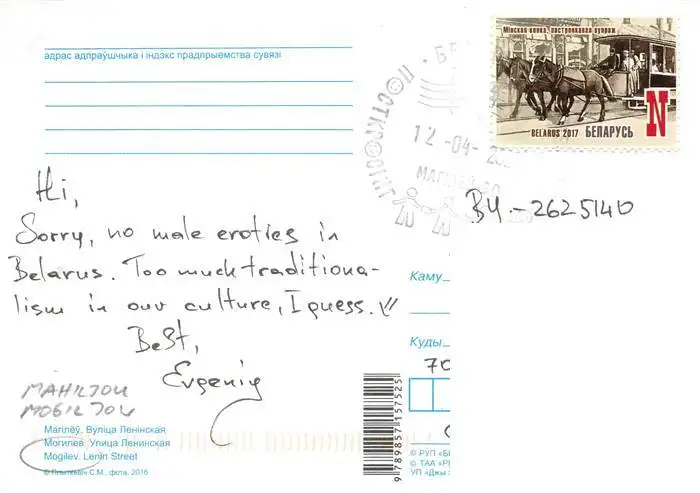 адрас адпраўшчыка і індэкс прадпрыемства сувязі
Мінская конка, пастронкавая купраж
BELARUS 2017 БЕЛАРУСЬ
N
ПОСТКРОСІНГ
12-04-
BY-2625140
Hi,
Sorry, no male erotics in
Belarus. Too much traditiona-
lism in our culture, I guess. \//
Best,
Evgeniy
Каму
Куды
70
MAHILIOU
MOGILIOU
Магілёў. Вуліца Ленінская
Могилев. Улица Ленинская
Mogilev. Lenin Street
© Плыткевич С.М., фота, 2016
9789857157525
© РУП «Б
© ТАА «Р
УП «Джы